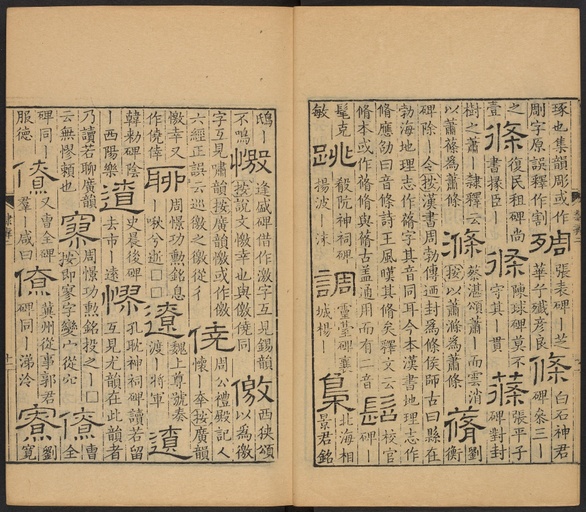 琢也集韻彫或作
彫字原誤釋作割
張表碑丨芝
華午殲彦良
條
白石神君
碑參三丨
之
壹
條
復民租碑尚
書掾臣丨
條
陳球碑莫不
守其丨貫
蓧
張平子
碑對封
樹之蕭丨隸釋云
以蕭蓧爲蕭條
滌
蔡湛頌蕭丨而雲消
按以蕭滌爲蕭條
脩
劉
衡
碑除丨令按漢書周勃傳適封爲條侯師古曰縣在
勃海地理志作脩字其音同耳今本漢書地理志作
蓨應劭曰音條詩王風嘆其脩矣釋文云
脩本或作蓨脩與脩古蓋通用而有二音
髫
校官
碑丨
髦克
敏丨
跳
殽阬神祠碑
揚波丨沫
調
靈臺碑
城楊丨
梟
北海相
景君銘
鴟丨
不鳴
憿
逢盛碑借作激字互見錫韻
按說文憿幸也與儌僥同
儌
西狹頌
以爲儌
字互見嘯韻按廣韻憿或作儌
六經正誤云巡徼之徼從彳
僥
周公禮殿記人
懷丨㚔按廣韻
憿幸又
作僥倖
聊
周憬功勲銘息
丨啾兮逝□□
遼
魏上尊號奏
渡丨將軍
遼
韓勑碑陰
丨西陽樂
遼
史晨後碑
去市丨遠
憀
孔耽神祠碑讀若留
互見尤韻在此韻者
乃讀若聊廣韻
云無憀賴也
寮
周憬功勲銘投之丨□
按即寮字變宀從穴
僚
曹
全
碑同丨
服德
僚
又曹全碑
羣丨咸曰
僚
冀州從事郭君
碑同丨涕泠
寮
劉
寬